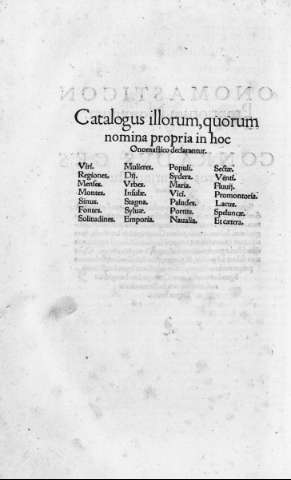 Catalogus illorum, quorum
nomina propria in hoc
Onomastico declarantur.
Viri. Mulieres. Populi. Sectæ.
Regiones. Dij. Sydera. Venti.
Menses. Vrbes. Maria. Fluuij.
Montes. Insulæ. Vici. Promontoria.
Sinus. Stagna. Paludes. Lacus.
Fontes. Syluæ. Portus. Speluncæ.
Solitudines. Emporia. Naualia. Et cætera.